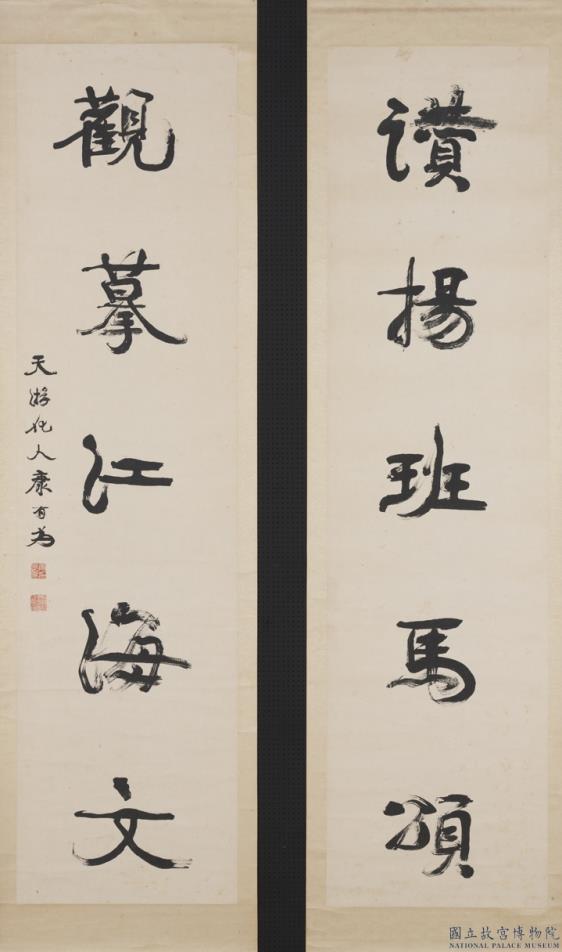 讚揚班馬頌
觀摹江海文
天游化人康有為
國立故宮博物院
NATIONAL PALACE MUSEUM